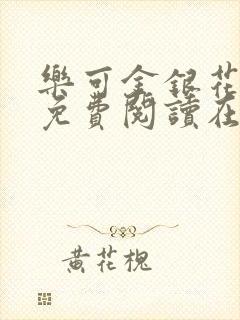 樂可金銀花
免費閱讀在
黃花槐